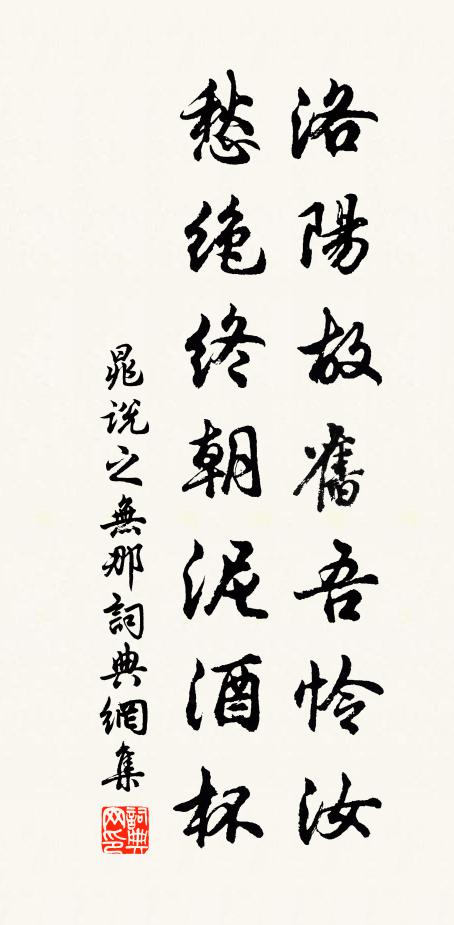 洛陽故舊吾怜汝
愁絶終朝泥酒杯
晁說之無那詞典網集
詞典网印